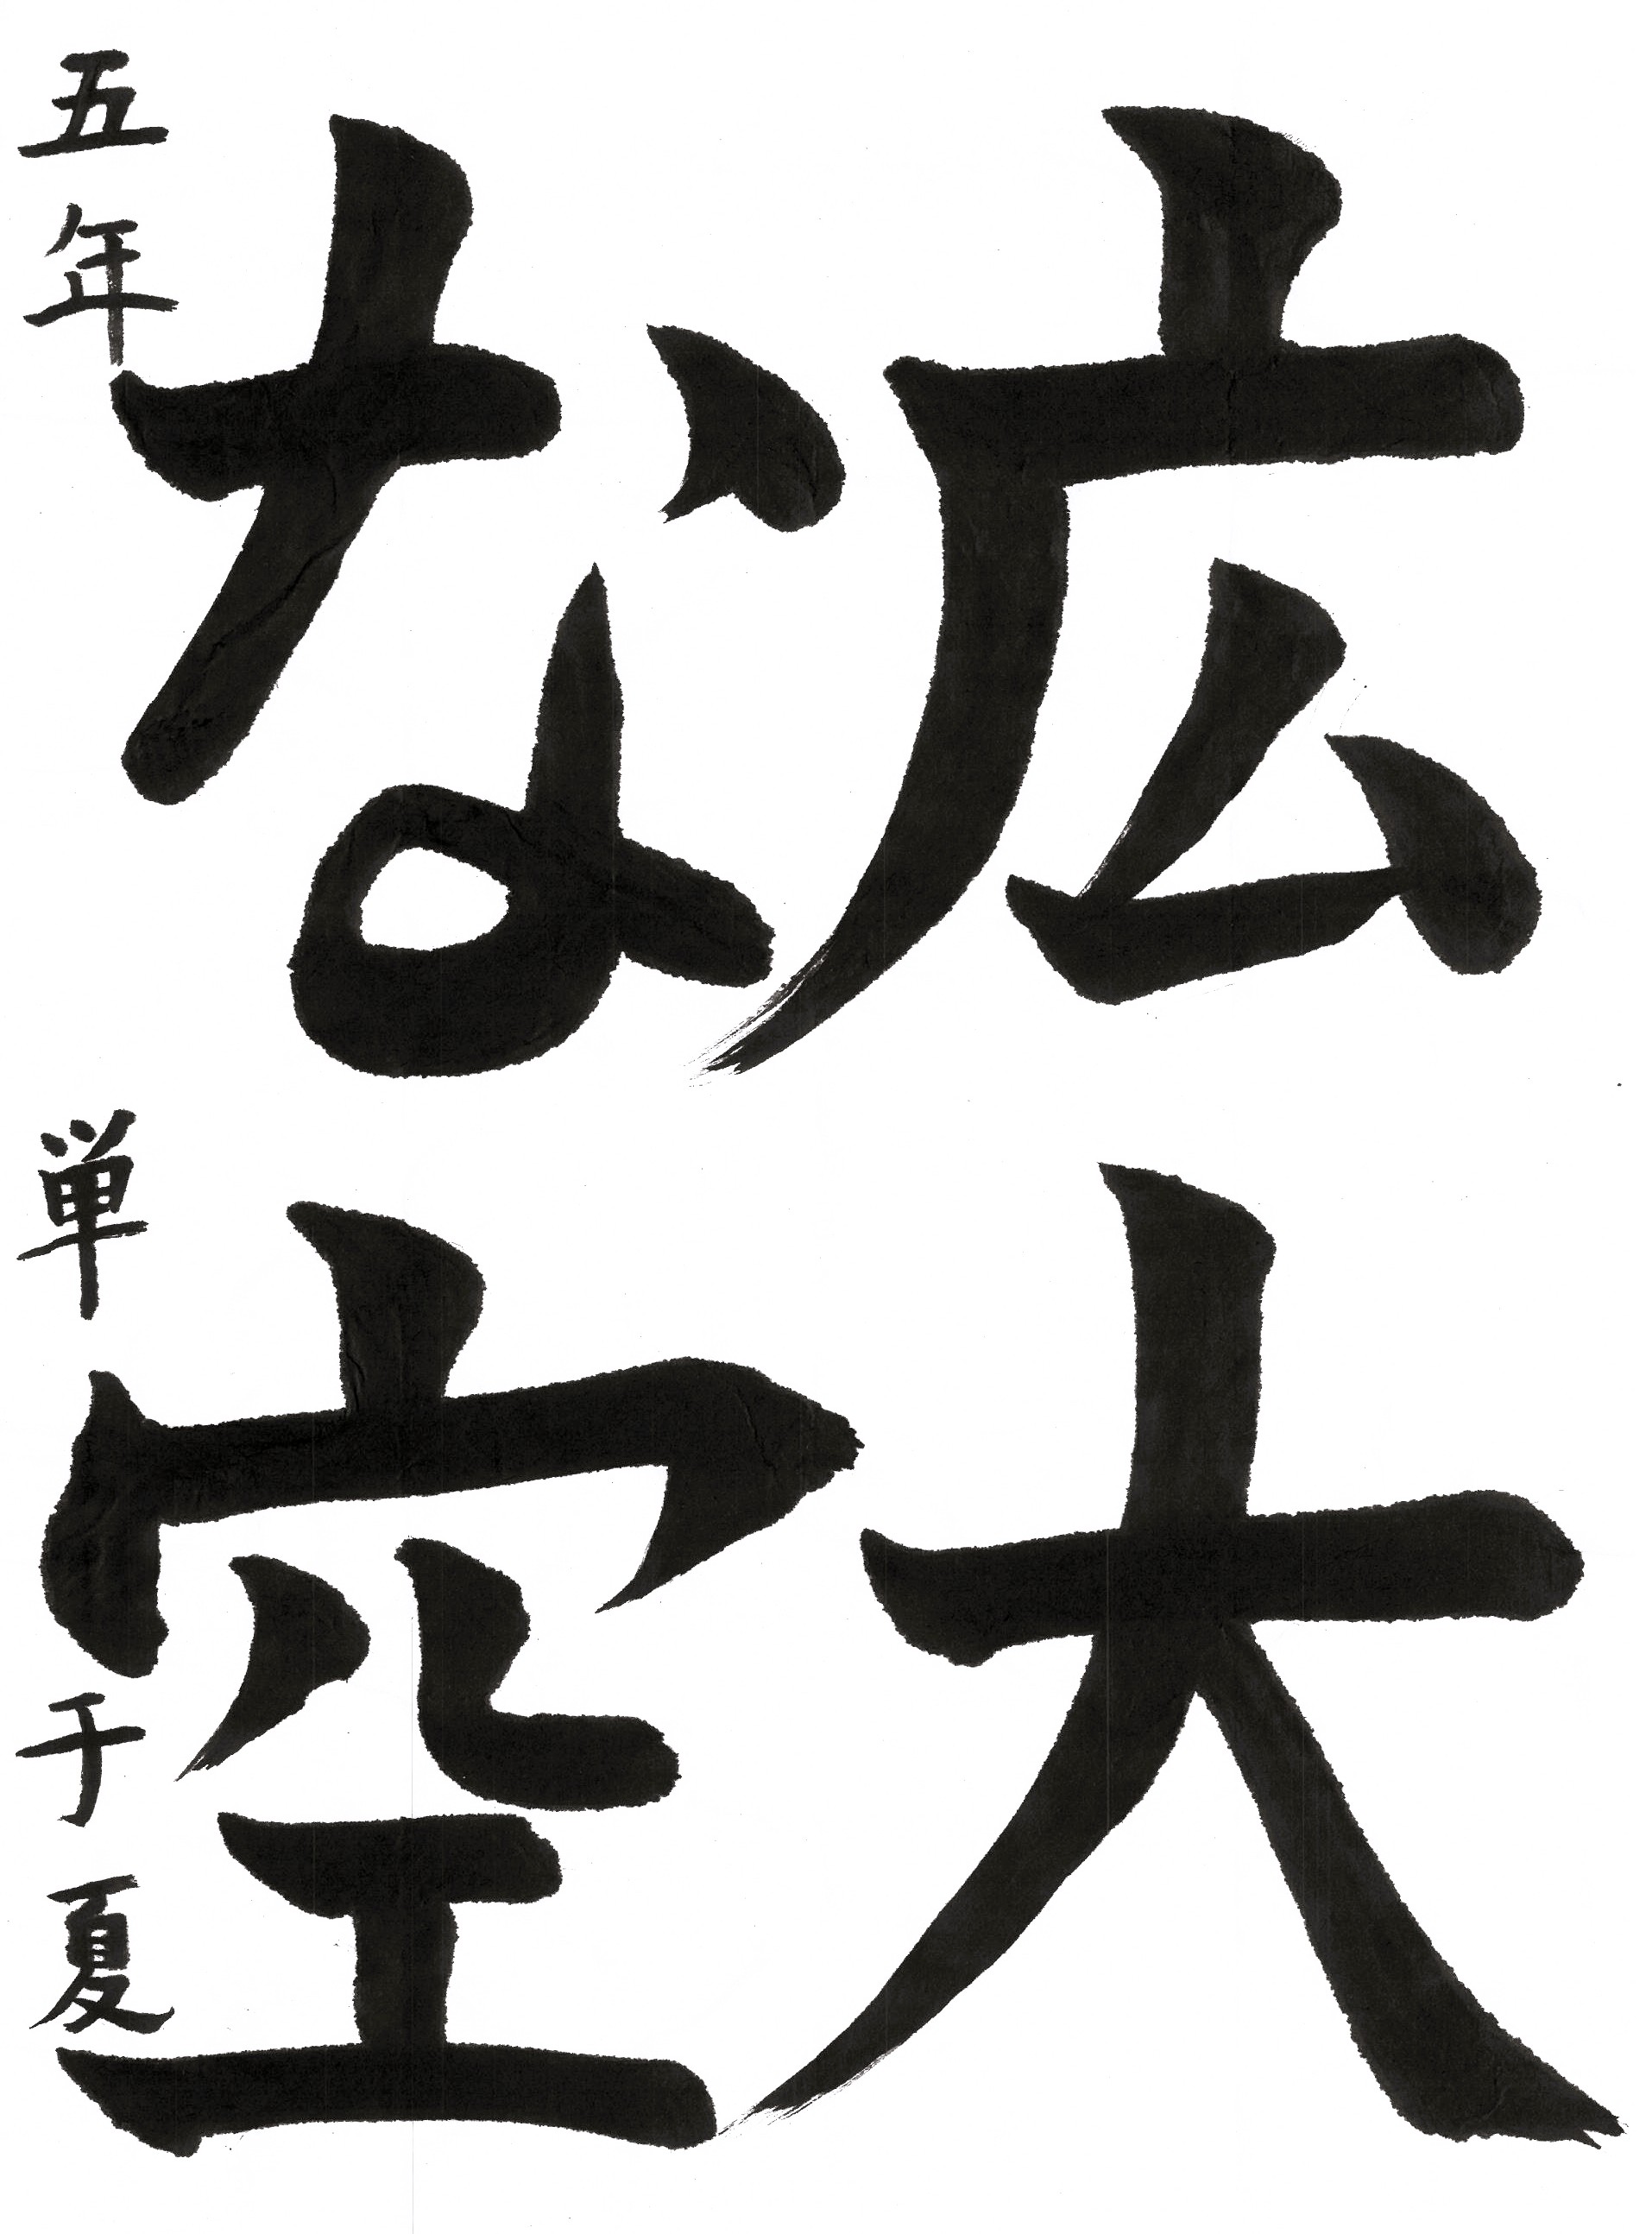 広大
な空
五年 単于夏